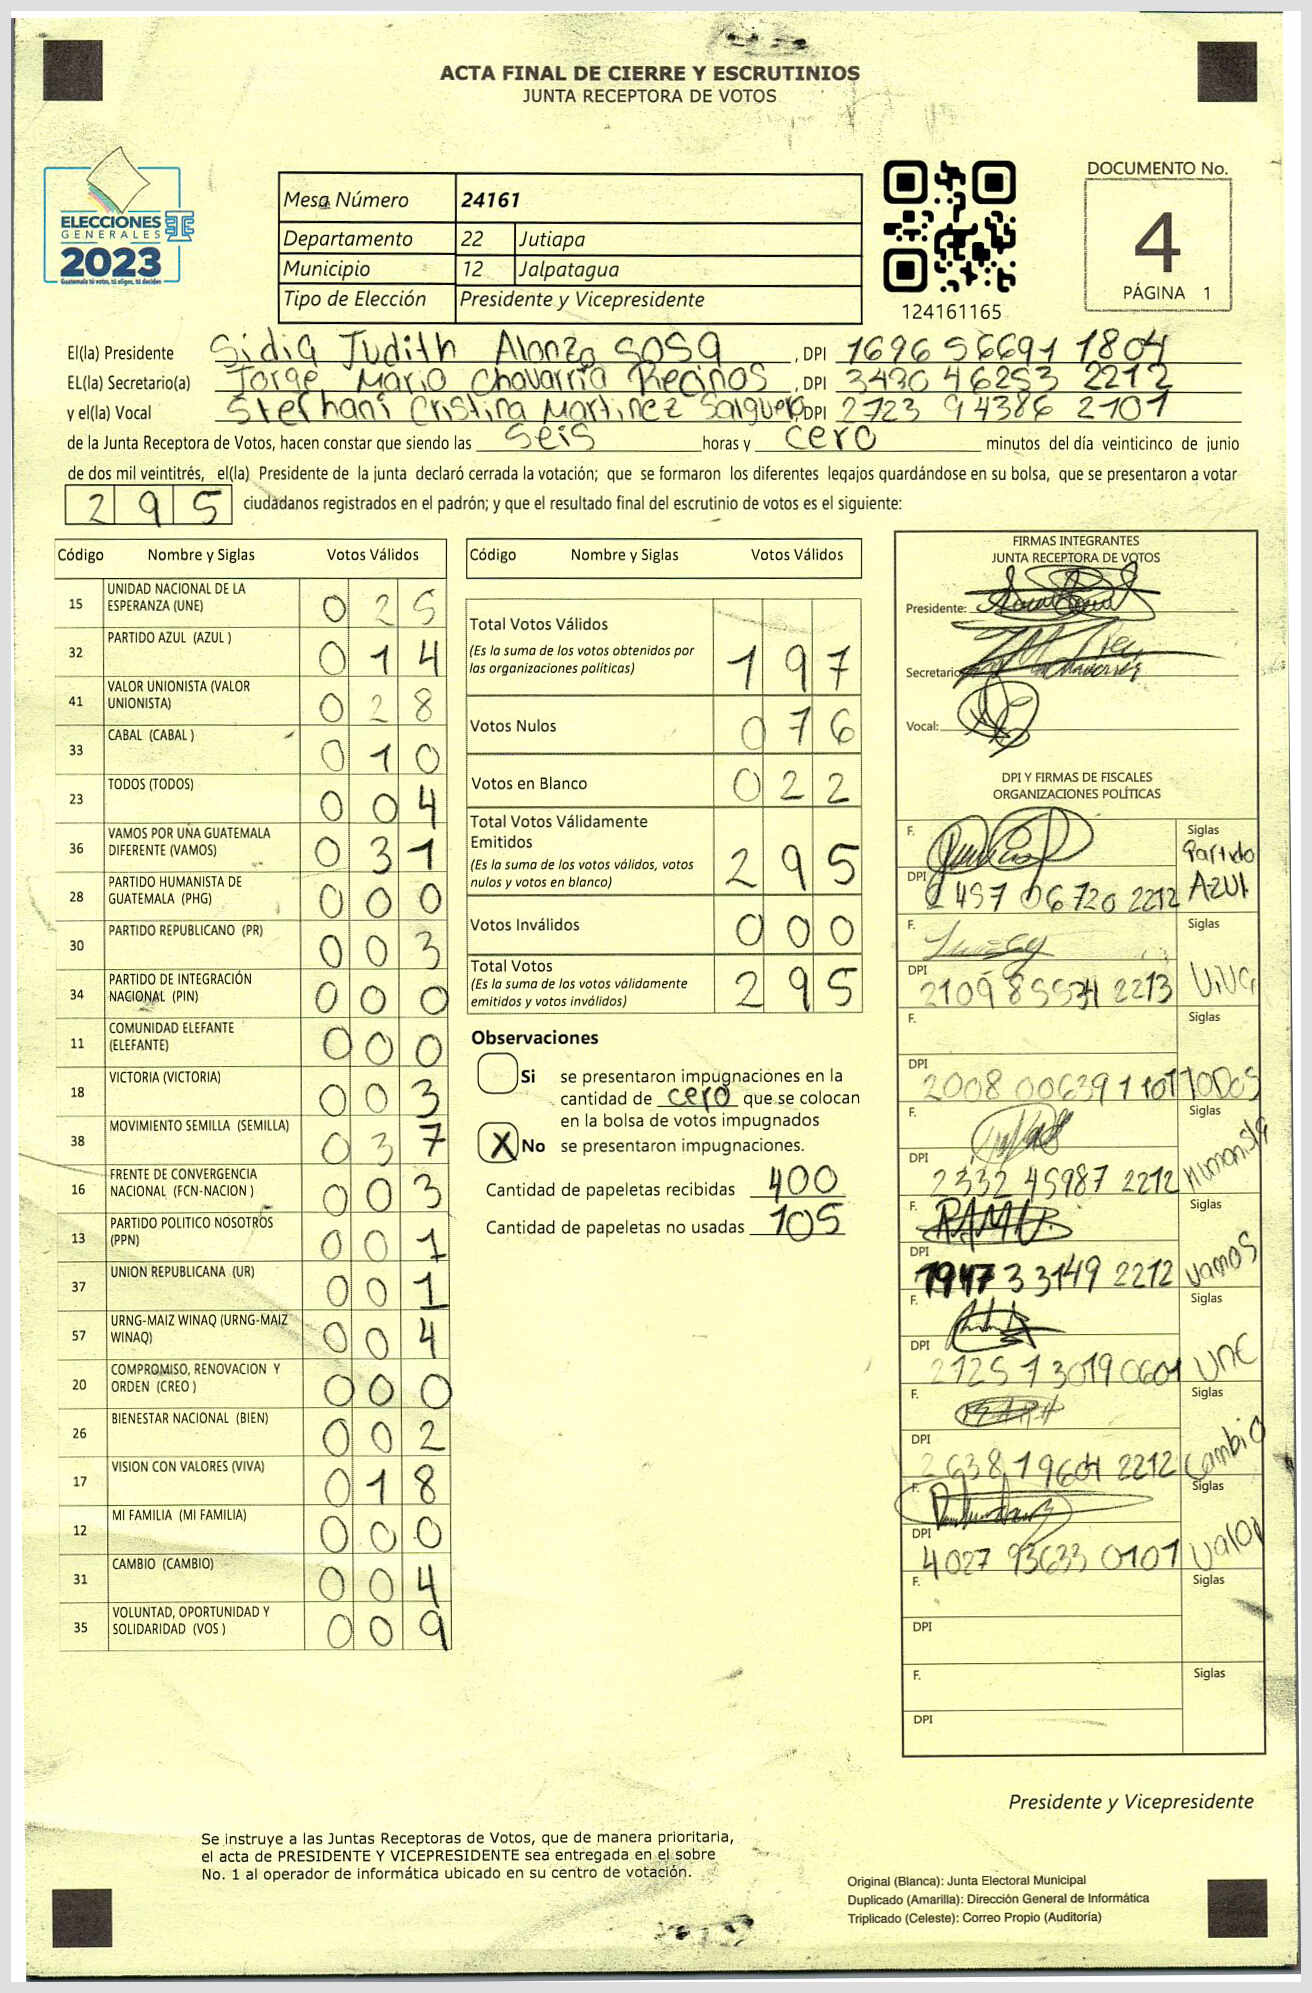 ACTA FINAL DE CIERRE Y ESCRUTINIOS
JUNTA RECEPTORA DE VOTOS
ELECCIONES
GENERALES
2023
Guatemala tú votas, tú eliges, tú decides
Mesa Número 24161
Departamento 22 Jutiapa
Municipio 12 Jalpatagua
Tipo de Elección Presidente y Vicepresidente
124161165
DOCUMENTO No.
4
PÁGINA 1
El(la) Presidente Sidia Judith Alonzo Sosa, DPI 1696 56691 1804
EL(la) Secretario(a) Jorge Mario Chavarria Recinos, DPI 3430 46253 2212
y el(la) Vocal Stephani Cristina Martinez Salguero, DPI 2723 94386 2101
de la Junta Receptora de Votos, hacen constar que siendo las seis horas y cero minutos del día veinticinco de junio
de dos mil veintitrés, el(la) Presidente de la junta declaró cerrada la votación; que se formaron los diferentes legajos guardándose en su bolsa, que se presentaron a votar
295 ciudadanos registrados en el padrón; y que el resultado final del escrutinio de votos es el siguiente:
Código Nombre y Siglas Votos Válidos
15 UNIDAD NACIONAL DE LA ESPERANZA (UNE) 0 2 5
32 PARTIDO AZUL (AZUL ) 0 1 4
41 VALOR UNIONISTA (VALOR UNIONISTA) 0 2 8
33 CABAL (CABAL ) 0 1 0
23 TODOS (TODOS) 0 0 4
36 VAMOS POR UNA GUATEMALA DIFERENTE (VAMOS) 0 3 1
28 PARTIDO HUMANISTA DE GUATEMALA (PHG) 0 0 0
30 PARTIDO REPUBLICANO (PR) 0 0 3
34 PARTIDO DE INTEGRACIÓN NACIONAL (PIN) 0 0 0
11 COMUNIDAD ELEFANTE (ELEFANTE) 0 0 0
18 VICTORIA (VICTORIA) 0 0 3
38 MOVIMIENTO SEMILLA (SEMILLA) 0 3 7
16 FRENTE DE CONVERGENCIA NACIONAL (FCN-NACION ) 0 0 3
13 PARTIDO POLITICO NOSOTROS (PPN) 0 0 1
37 UNION REPUBLICANA (UR) 0 0 1
57 URNG-MAIZ WINAQ (URNG-MAIZ WINAQ) 0 0 4
20 COMPROMISO, RENOVACION Y ORDEN (CREO ) 0 0 0
26 BIENESTAR NACIONAL (BIEN) 0 0 2
17 VISION CON VALORES (VIVA) 0 1 8
12 MI FAMILIA (MI FAMILIA) 0 0 0
31 CAMBIO (CAMBIO) 0 0 4
35 VOLUNTAD, OPORTUNIDAD Y SOLIDARIDAD (VOS ) 0 0 9
Código Nombre y Siglas Votos Válidos
Total Votos Válidos 1 9 7
(Es la suma de los votos obtenidos por
las organizaciones políticas)
Votos Nulos 0 7 6
Votos en Blanco 0 2 2
Total Votos Válidamente
Emitidos 2 9 5
(Es la suma de los votos válidos, votos
nulos y votos en blanco)
Votos Inválidos 0 0 0
Total Votos 2 9 5
(Es la suma de los votos válidamente
emitidos y votos inválidos)
Observaciones
Si se presentaron impugnaciones en la
cantidad de cero que se colocan
en la bolsa de votos impugnados
X No se presentaron impugnaciones.
Cantidad de papeletas recibidas 400
Cantidad de papeletas no usadas 105
FIRMAS INTEGRANTES
JUNTA RECEPTORA DE VOTOS
Presidente:
Secretario
Vocal:
DPI Y FIRMAS DE FISCALES
ORGANIZACIONES POLÍTICAS
F. Siglas Partido AZUL
DPI 2497 06720 2212
F. Siglas VIVA
DPI 2109 85534 2213
F. Siglas TODOS
DPI 2008 00639 1101
F. Siglas Humanista
DPI 2332 45987 2212
F. Siglas Vamos
DPI 1947 33149 2212
F. Siglas UNE
DPI 2125 73019 0601
F. Siglas Cambio
DPI 2638 19604 2212
F. Siglas Valor
DPI 4027 93633 0101
F. Siglas
DPI
F. Siglas
DPI
Presidente y Vicepresidente
Se instruye a las Juntas Receptoras de Votos, que de manera prioritaria,
el acta de PRESIDENTE Y VICEPRESIDENTE sea entregada en el sobre
No. 1 al operador de informática ubicado en su centro de votación.
Original (Blanca): Junta Electoral Municipal
Duplicado (Amarilla): Dirección General de Informática
Triplicado (Celeste): Correo Propio (Auditoría)